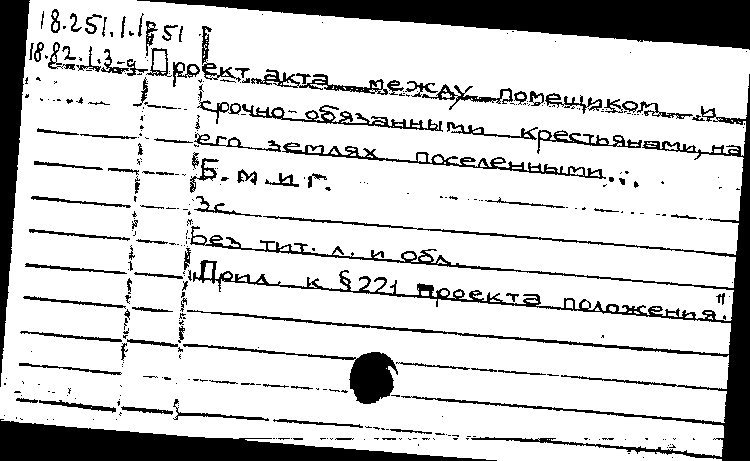 18.251.1.1 51
18.82.1.3-д Проект акта между помещиком и
срочно-обязанными крестьянами, на
его землях поселенными...
Б.м.и г.
3с.
Без тит. л. и обл.
"Прил. к §221 проекта положения".